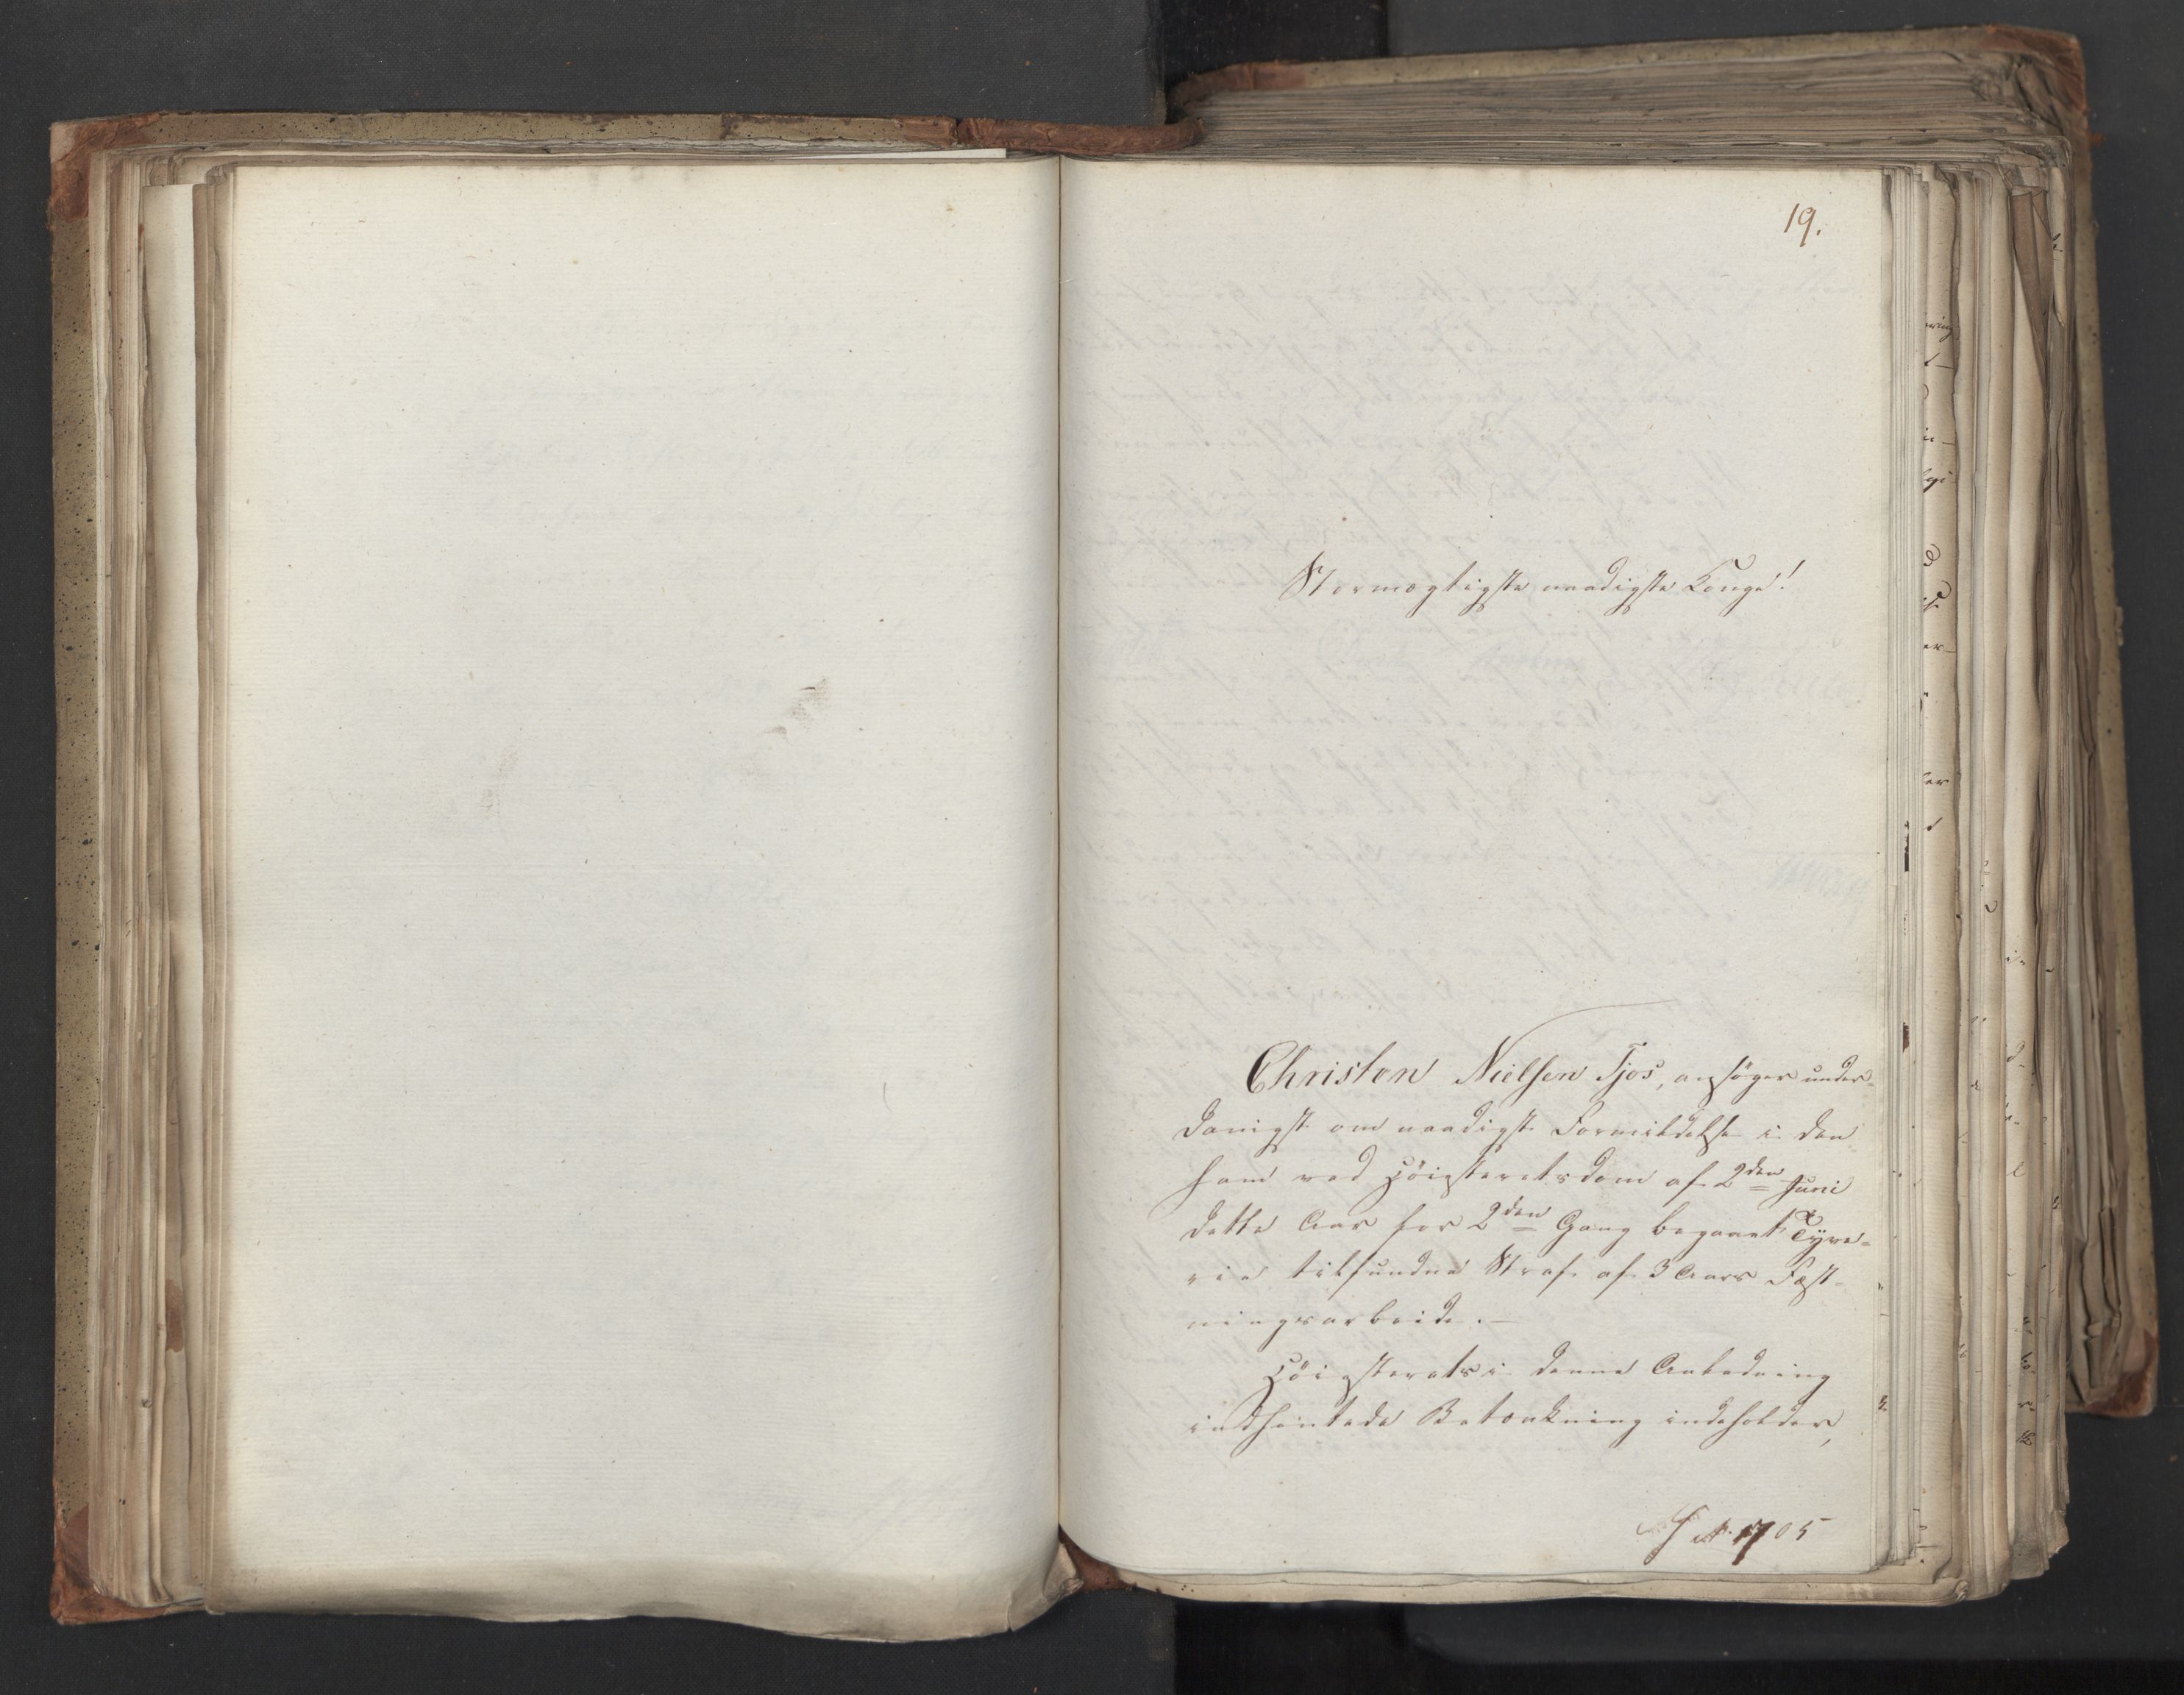 19.
Stormægtigste naadigste Konge!
Christen Nielsen Tjos, ansøger under-
danigst om naadigst Formildelse i den
ham ved Höiesteretsdom af 2den Juni
dette Aar for 2den Gang begaaet Tyve-
rie tilfundne Straf af 3 Aars Fæst-
ningsarbeide. —
Höiesterets i denne Anledning
indhentede Betænkning indeholder,
1705